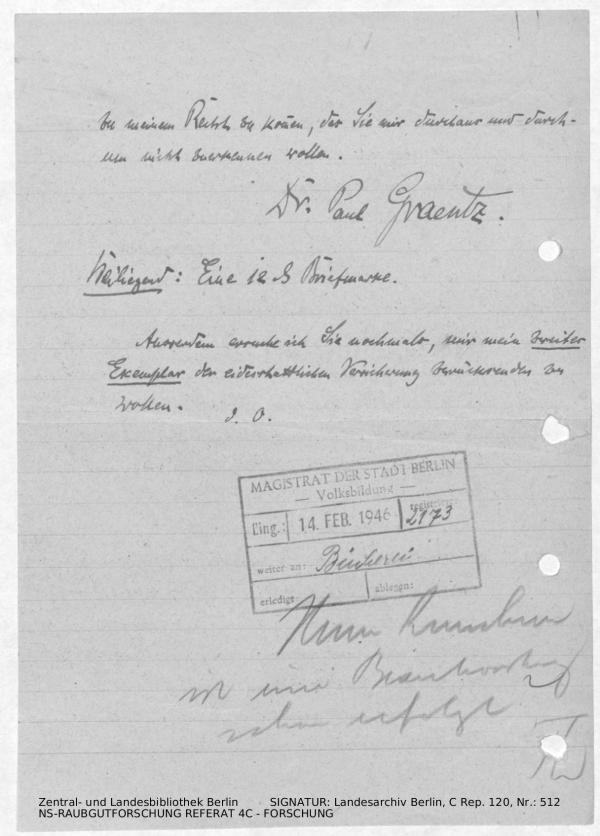 zu meinem Recht zu kommen, das Sie mir durchaus und durch-
aus nicht anerkennen wollen.
Dr. Paul Graentz.
Beiliegend: Eine 12 Briefmarke.
Ausserdem ersuche ich Sie nochmals, mir mein zweites
Exemplar der eidesstattlichen Versicherung zurücksenden zu
wollen.
D. O.
MAGISTRAT DER STADT BERLIN
— Volksbildung —
Eing.: 14. FEB. 1946 registriert: 2173
weiter an: Bücherei
erledigt: ablegen:
Herrn
ist eine Beantwortung
schon erfolgt
Zentral- und Landesbibliothek Berlin SIGNATUR: Landesarchiv Berlin, C Rep. 120, Nr.: 512
NS-RAUBGUTFORSCHUNG REFERAT 4C - FORSCHUNG